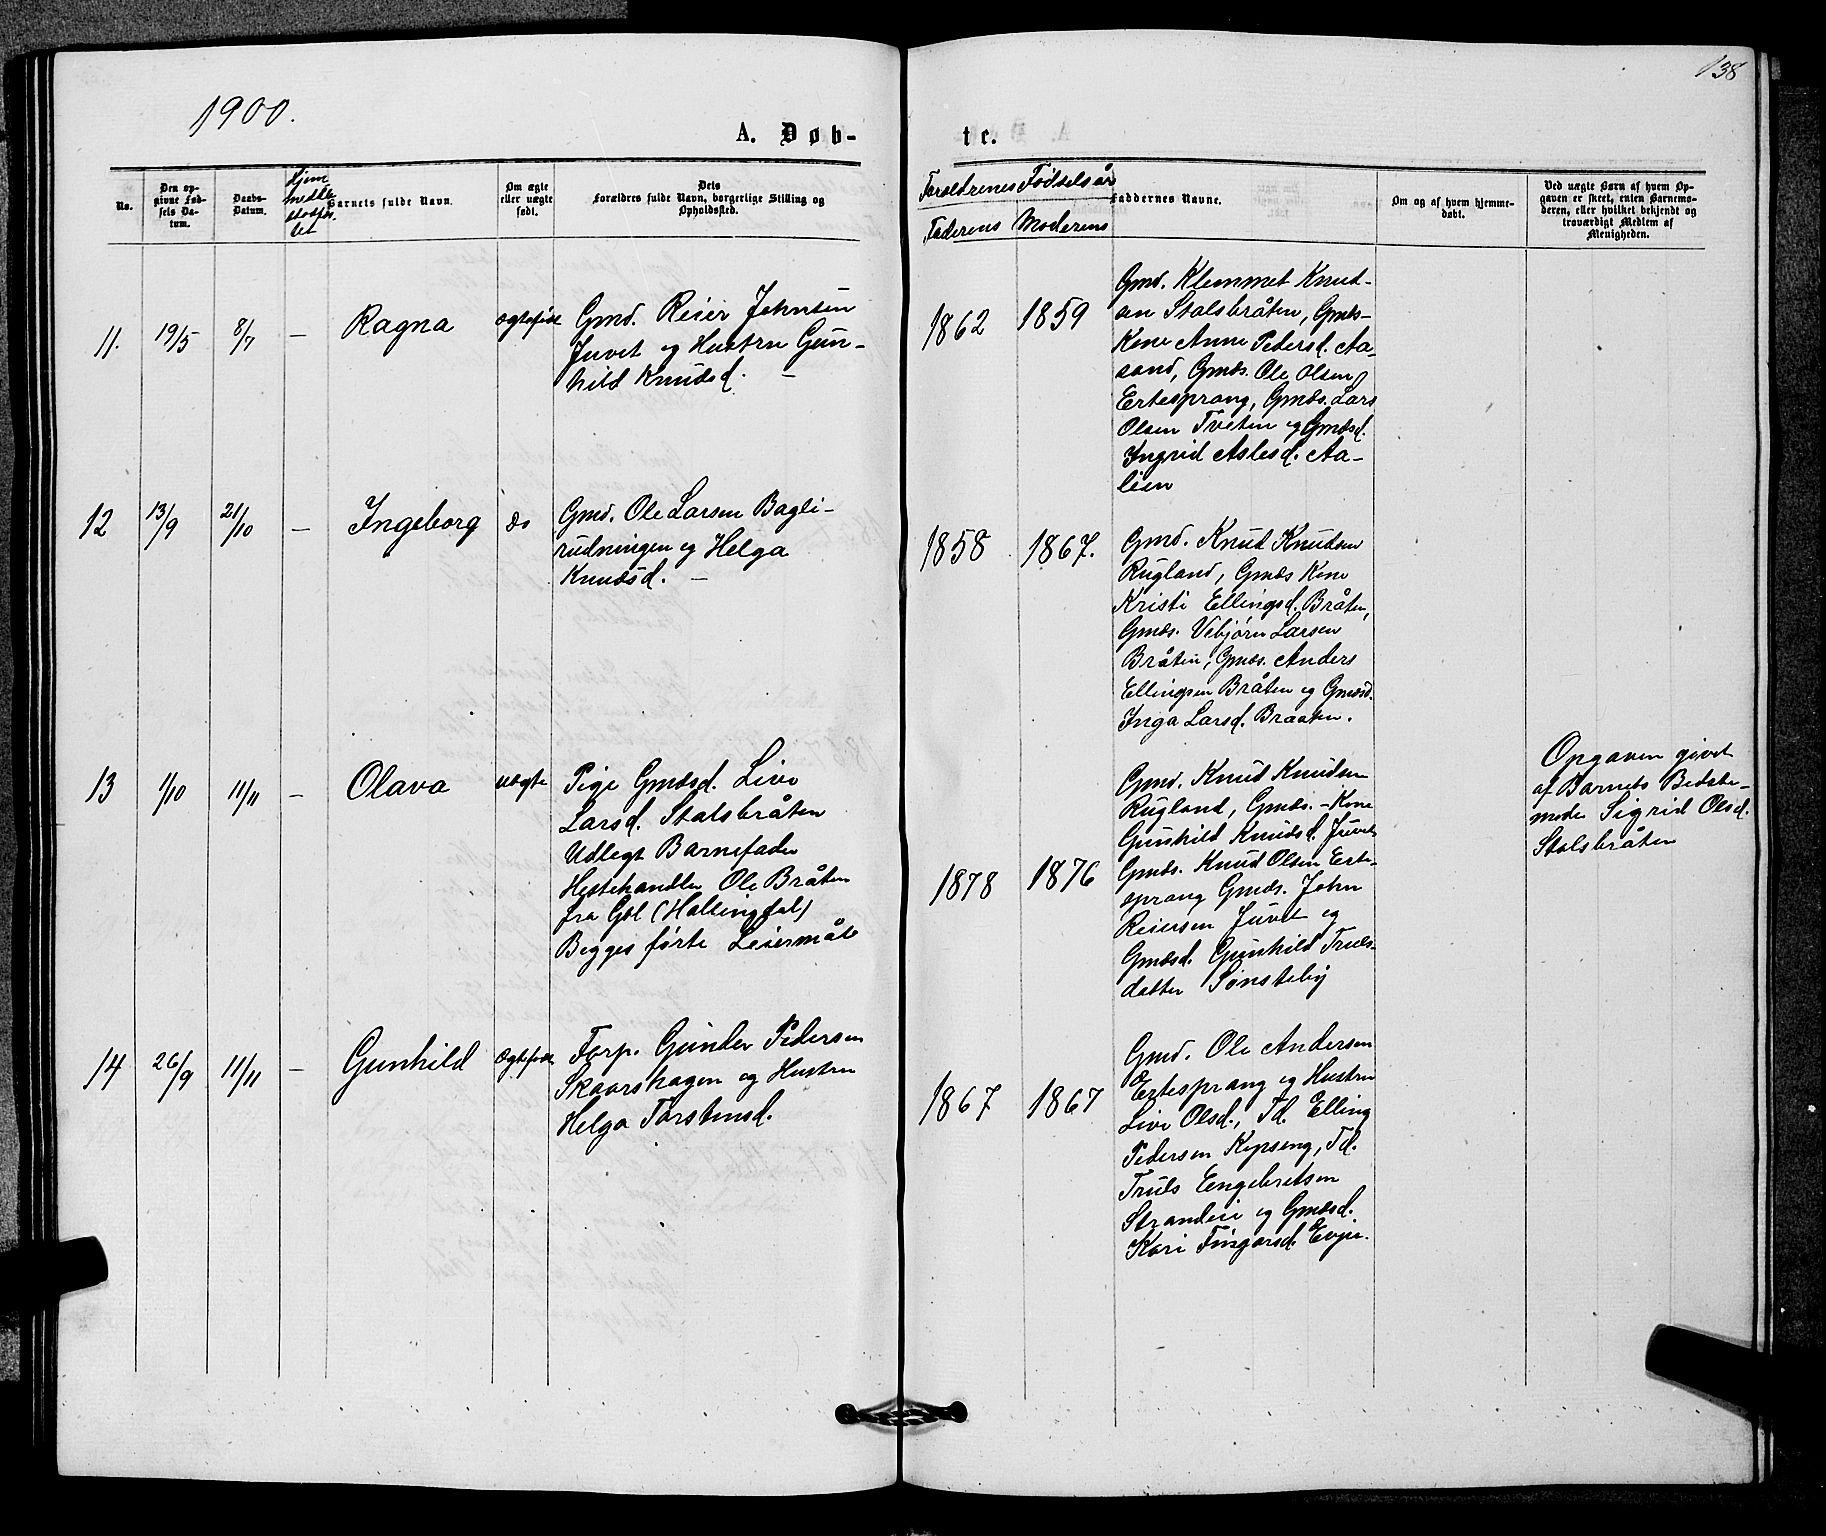 1900.
138
A. Døb-
te.
No.
Den op-
givne Fød-
sels Da-
tum.
Daabs-
Datum.
Hjem
medde
Barnets fulde Navn.
Om ægte
eller uægte
født.
Dets
Forældres fulde Navn, borgerlige Stilling og
Opholdssted.
Forældrenes Fødselsår
Faderens Moderens
Faddernes Navne.
Om og af hvem hjemme-
døbt.
Ved uægte Børn af hvem Op-
gaven er skeet, enten Barnemo-
deren, eller hvilket bekjendt og
troværdigt Medlem af
Menigheden.
11. 19/5 8/7 — Ragna ægtefødt
Gmd. Reier Johnsen
Juvet og Hustru Gun-
hild Knudsd. —
1862 1859
Gmd. Klemmet Knud-
sen Stalsbråten, Gmds-
Kone Anne Pedersd. Aa-
sand, Gmds. Ole Olsen
Ertesprang, Gmds. Lars
Olsen Tveten og Gmdsd.
Ingrid Aslesd. Aa-
lien
12 13/9 21/10 — Ingeborg do
Gmd. Ole Larsen Bagli-
rudningen og Helga
Knudsd. —
1858 1867.
Gmd. Knud Knudsen
Rugland, Gmds Kone
Kristi Ellingsd. Bråten,
Gmds. Vebjørn Larsen
Bråten, Gmds. Anders
Ellingsen Bråten og Gmdsd.
Inga Larsd. Braaten.
13 1/10 11/11 — Olava uægte
Pige Gmdsd. Live
Larsd. Stalsbråten
Udlegt Barnefader
Hestehandler Ole Bråten
fra Gol (Hallingdal)
Begges førte Leiermål
1878 1876
Gmd. Knud Knudsen
Rugland, Gmds.-Kone
Gunhild Knudsd. Juvet
Gmds. Knud Olsen Erte-
sprang Gmds. John
Reiersen Juvet og
Gmdsd. Gunhild Truls-
datter Sønsteby
Opgaven givet
af Barnets Bedste-
moder Sigrid Olsd.
Stalsbråten
14 26/9 11/11 — Gunhild Ægtefødt
Forp. Gunder Pedersen
Skaarshagen og Hustru
Helga Torstensd.
1867 1867
Gmd. Ole Andersen
Ertesprang og Hustru
Live Olsd., Td. Elling
Pedersen Kopseng, Td.
Truls Engebretsen
Strandeie og Gmdsd.
Kari Fingarsd. Evju.